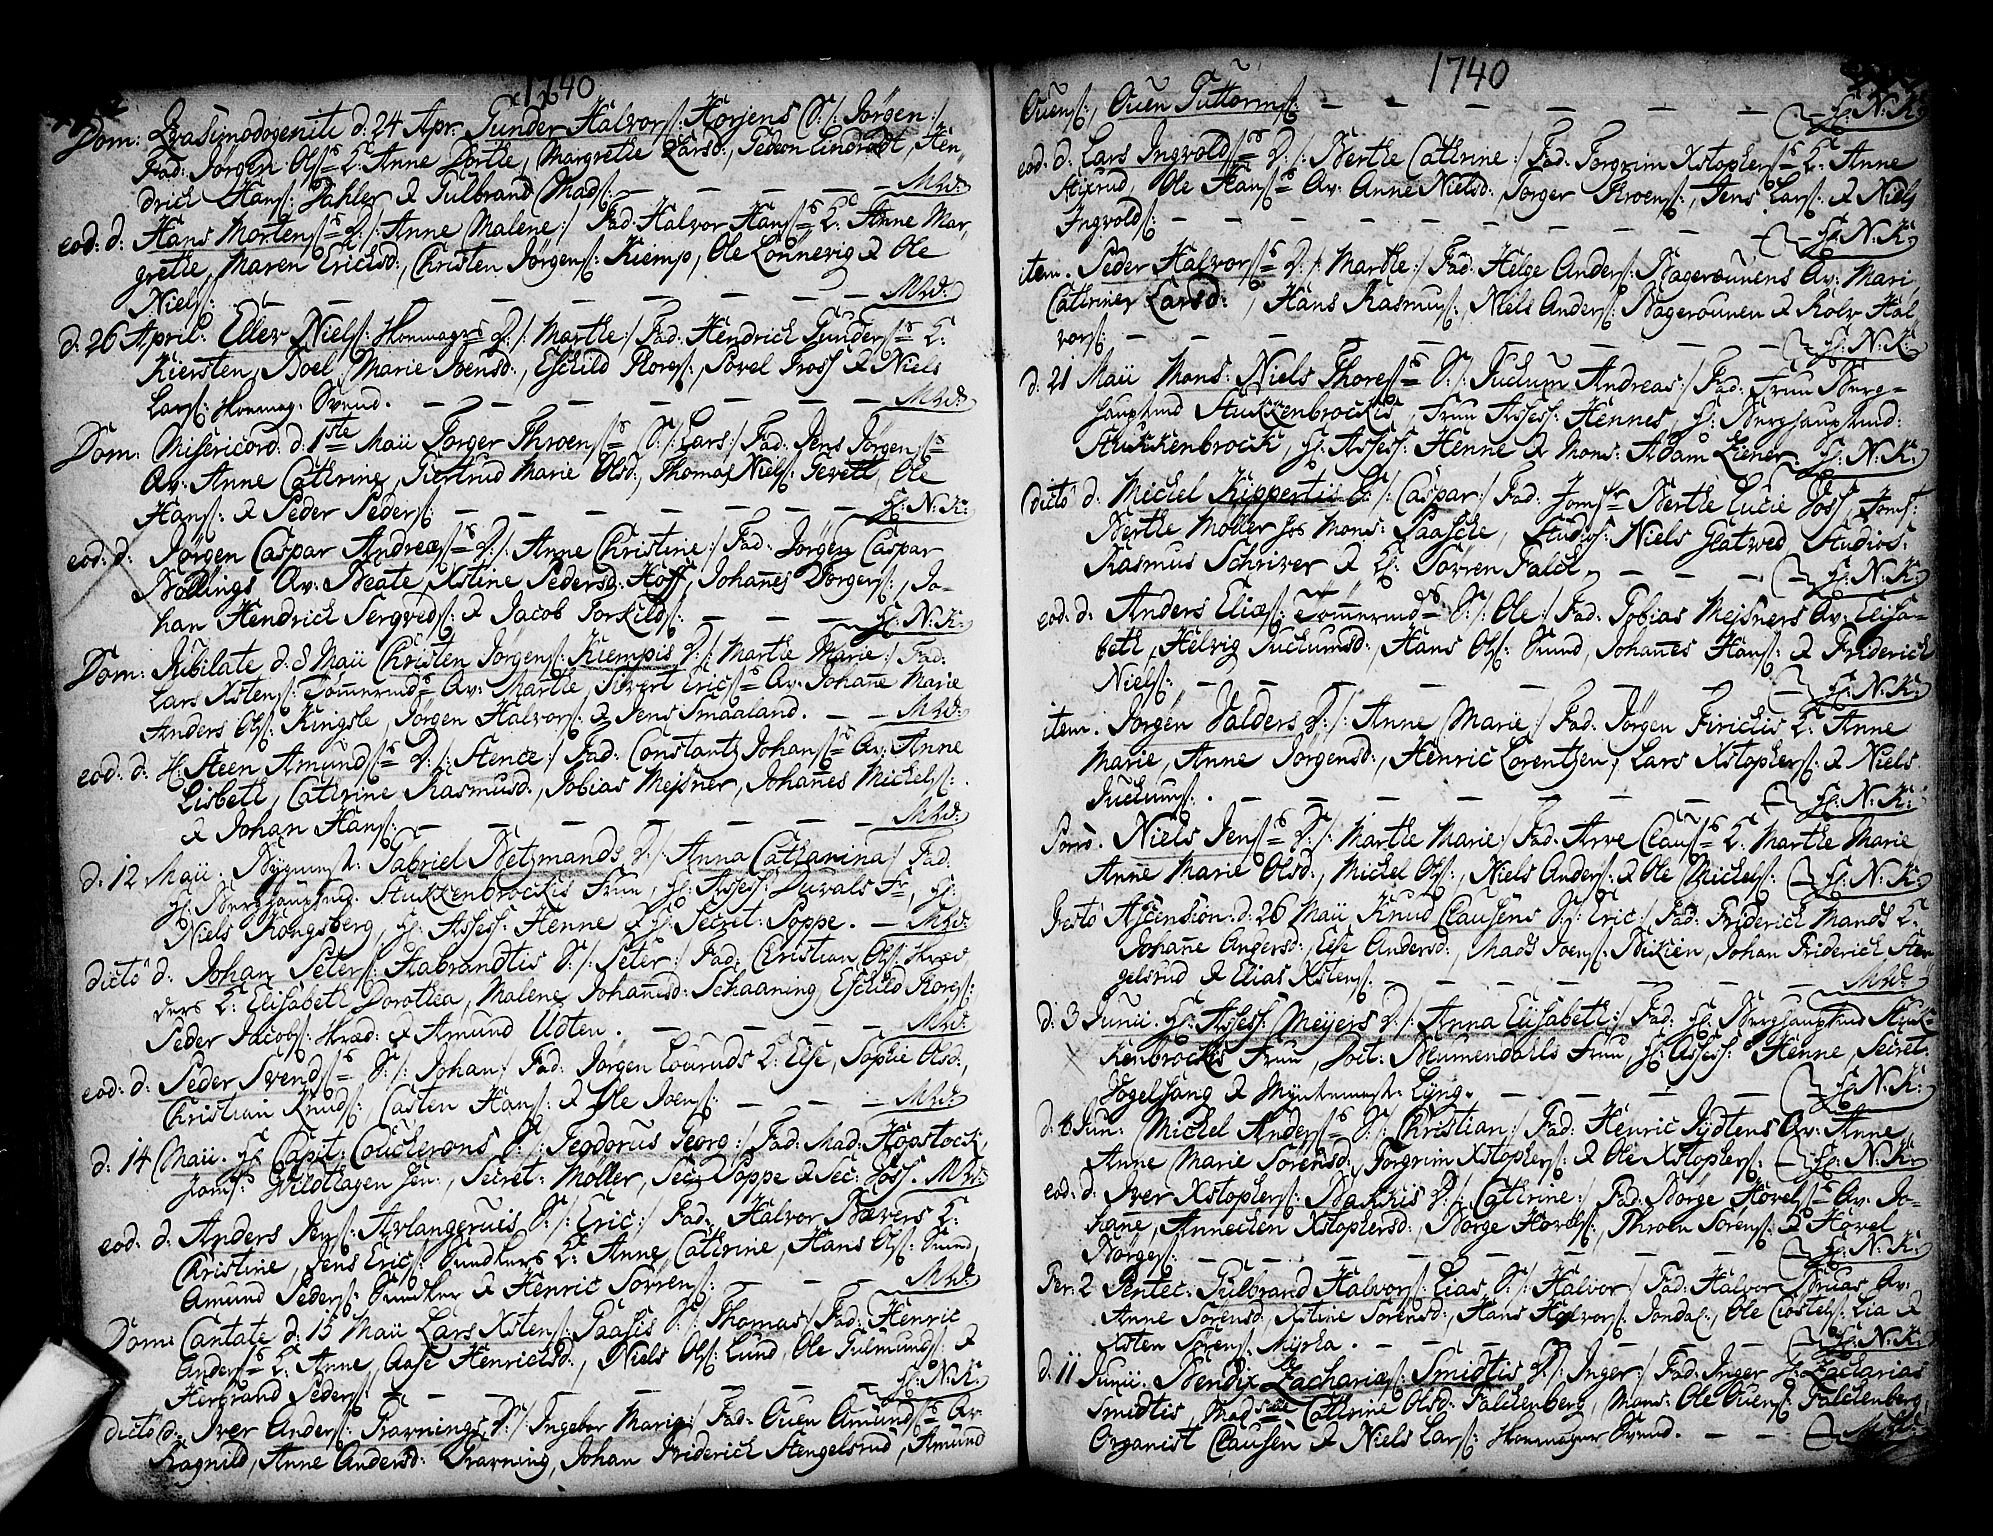 1740
Dom: Qvasimodogeniti d. 24 Apr. Gunder Halvorſ: Hørjens S:/: Jørgen:/
Fad: Jørgen Olſ: K: Anne Dorthe, Margrethe Larsd:, Gedeon Lindradt, Hen,,
drich Hanſ: Dahler & Gulbrand Madſ: — — — — — MHd:
eod: d: Hans Mortenſ: D:/: Anne Malene:/ Fad: Halvor Hanſ: K: Anne Mar,
grethe, Maren Erichsd:, Christen Jørgenſ: Kiemp, Ole Lønnevig & Ole
Nielſ: — — — — — — — — MHd:
d: 26 April: Ellev Nielſ: D:/: Marthe:/ Fad: Hendrich Gunderſ: K:
Kiersten, Boel Marie Joensd:, Eſchild Roreſ:, Povel Proſſ & Niels
Larſ: Svend. — — — — — — — MHd:
Dom: Misericord: d: 1ste Maii Torger Throenſ: S:/: Lars:/ Fad: Jens Jørgenſ:
Qv: Anne Cathrine, Giertrud Marie Olsd:, Thomas Nielſ: Gevelt, Ole
Hanſ: & Peder Pederſ: — — — — — — H: N: K:
eod: d: Jørgen Caspar Andreæſ: D:/: Anne Christine:/ Fad: Jørgen Caspar
Bøllings Qv: Beate Xstine Pedersd: Hoff, Johañes Jørgenſ:, Jo-
han Hendrich Sergvedſ: & Jacob Torkildſ: — — — H: N: K:
Dom: Jubilate d: 8 Maii Christen Jørgenſ: Kiempis D:/: Marthe Marie:/ Fad:
Lars Xstenſ: Tømmerud Qv: Marthe, Sivert Ericſ: Qv: Johañe Marie
Anders Olſ: Kingsle, Jørgen Halvorſ: & Jens Smaaland. — — MHd:
eod: d: H: Steen Amundſ: D:/: Stence:/ Fad: Constantz Johanſ: Qv: Anne
Lisbeth, Cathrine Rasmusd:, Tobias Meiſner, Johañes Michelſ:
& Johan Hanſ: — — — — — — — MHd:
d: 12 Maii. Gabriel Betzmands D:/: Anna Catharina:/ Fad:
H: Berghauptmd: Stukkenbrockis Frue, H: Aſſeſſ: Duvals Fr:, H:
Niels Kongsberg, H: Aſſeſſ: Henne & H: Secret: Poppe. — MHd:
dicto d: Johan Peterſ: Stabrandtis S:/: Peter:/ Fad: Christian Olſ: Skræd
ders K: Elisabeth Dorothea, Malene Johañesd: Schaaning, Eſchild Roreſ:
Peder Jacobſ: Skræd: & Amund Udten. — — — — MHd:
eod: d: Peder Svendſ: S:/: Johan:/ Fad: Jørgen Louruds K: Elſe, Sophie Olsd:,
Christian Knudſ:, Casten Hanſ: & Ole Joenſ: — — — MHd:
d: 14 Maii. H: Capit: Coucherons S:/: Teodorus Georg:/ Fad: Mad: Hopstock,
Jomf: Wildthagen Jen:, Secret: Møller, Secr: Poppe & Sec: Joſſ. MHd:
eod: d: Anders Jenſ: S:/: Eric:/ Fad: Halvor Bævers K:
Christine, Jens Ericſ: Sundkers K: Anne Cathrine, Hans Olſ: Sund,
Amund Pederſ: Sundker & Henric Sørrenſ: — — — MHd:
Dom: Cantate d: 15 Maii Lars Xstenſ: Paaſis S:/: Thomas:/ Fad: Henric
Anderſ: K: Anne, Aaſe Henrichsd:, Niels Olſ: Lund, Ole Gulmundſ: &
Herbrand Pederſ: — — — — — — — H: N: K:
dicto d: Iver Anderſ: Travnings D:/: Ingebor Marie:/ Fad: Ouen Amundſ: Qv:
Ragnild, Anne Andersd: Travning, Johan Friderich Stengelsrud, Amund
1740
Ouenſ:, Ouen Guttormſ: — — — — — — H: N: K:
eod: d: Lars Ingvoldſ: D:/: Berthe Cathrine:/ Fad: Torgrim Xstopherſ: K: Anne
Stixrud, Ole Hanſ: Qv: Anne Nielsd: Torger Throenſ:, Jens Larſ: & Niels
Ingvoldſ: — — — — — — — — H: N: K:
item. Peder Halvorſ: D:/: Marthe:/ Fad: Helge Anderſ: Bagerounens Qv: Mari,
Cathrine Larsd:, Hans Rasmuſ:, Niels Anderſ: Bagerounen & Rolv Hal
vorſ: — — — — — — — — H: N: K:
d: 21 Maii Mons: Niels Thoreſ: S:/: Juchum Andreas:/ Fad: Fruu Berg-
hauptmd Stukkenbrockis, Fruu Aſſeſſ: Hennes, H: Berghauptmd:
Stukkenbrock, H: Aſſeſſ: Henne & Mons: Adam Liener. H: N: K:
dicto d: Michel Kippertii S:/: Caspar:/ Fad: Jomfr Berthe Lucie Joſſ, Jomf:
Berthe Møller hos Mons: Paaſche, Studioſ: Niels Glatved, Studios:
Rasmus Schriver & H: Sørren Falch. — — — — H: N: K:
eod: d: Anders Eliæſ: Tømmerud S:/: Ole:/ Fad: Tobias Meiſners Qv: Eliſa-
beth, Helvig Juchumsd:, Hans Olſ: Sund, Johañes Hanſ: & Friderich
Nielſ: — — — — — — — — H: N: K:
item. Jørgen Valders D:/: Anne Marie:/ Fad: Jørgen Firichis K: Anne
Marie, Anne Jørgensd:, Henric Lorentzen, Lars Xstopherſ: & Niels
Juchumſ: — — — — — — — — H: N: K:
Porro. Niels Jenſ: D:/: Marthe Marie:/ Fad: Arve Clauſ: K: Marthe Marie
Anne Marie Olsd:, Michel Olſ:, Niels Anderſ: & Ole Michelſ: — H: N: K:
Festo Aſcension: d: 26 Maii Knud Clauſens S:/: Eric:/ Fad: Friderich Mands K:
Johañe Andersd:, Elſe Andersd:, Mads Joenſ: Bikien, Johan Friderich Sten
gelsrud & Elias Xstenſ: — — — — — — MHd:
d: 3 Junii. H: Aſſeſſ: Meyers D:/: Anna Eliſabeth:/ Fad: H: Berghauptmd Stuk-
kenbrockis Fruu, Blumendalls Fruu, H: Aſſeſſ: Henne, Secret:
Vogelſang & Myntemester Lÿng. — — — — — H: N: K:
d: 6 Jun: Michel Anderſ: S:/: Christian:/ Fad: Henric Jydtens Qv: Anne,
Anne Marie Sørensd:, Torgrim Xstopherſ: & Ole Xstopherſ: — H: N: K:
eod: d: Iver Xstopherſ: Bakkis D:/: Cathrine:/ Fad: Børge Hovelſ: Qv: Jo-
hañe, Annechen Xstophersd:, Børge Hovelſ:, Throen Sørenſ: & Hovel
Børgeſ: — — — — — — — — H: N: K:
Fer: 2 Pentec: Gulbrand Halvorſ: Lias S:/: Halvor:/ Fad: Halvor Bruas Qv:
Anne Sørensd:, Xstine Sørensd:, Hans Halvorſ: Jondal:, Ole Costelſ: Lia &
Xsten Sørenſ: Myrla. — — — — — — H: N: K:
d: 11 Junii. Bendix Zachariæſ: Smidtis D:/: Inger:/ Fad: Inger H: Zacharias
Smidtis, Cathrine Olsd: Falckenberg, Mons: Ole Ouenſ: Falckenberg,
Organist Clauſen & Niels Larſ: Svend. — — MHd: